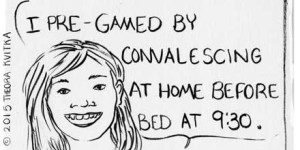 I PRE-GAMED BY
CONVALESCING
AT HOME BEFORE
BED AT 9:30.
© 2015 THEDRA KVITKA